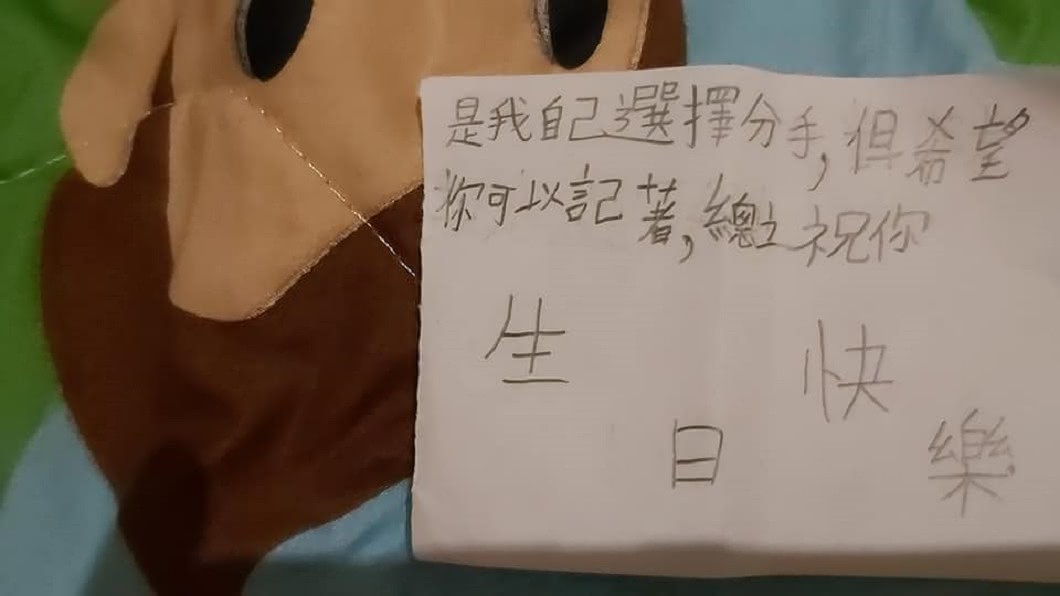 是我自己選擇分手,但希望
你可以記著,總之祝你
生日快樂